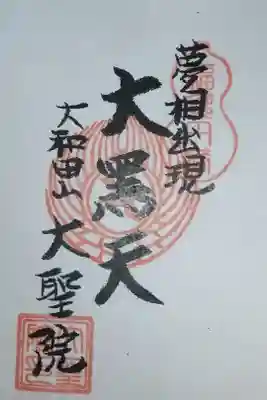 夢相出現
大黒天
大和田山 大聖院